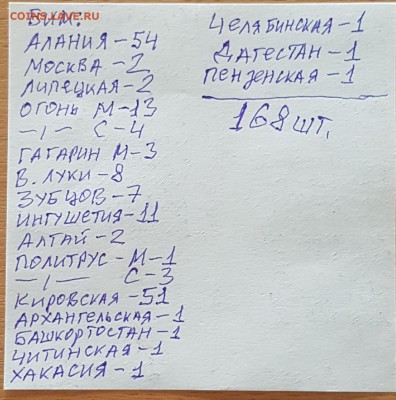 COINS.LAVE.RU
БИМ:
АЛАНИЯ-54
МОСКВА-2
ЛИПЕЦКАЯ-2
ОГОНЬ М-13
—ı— С-4
ГАГАРИН М-3
В. ЛУКИ-8
ЗУБЦОВ-7
ИНГУШЕТИЯ-11
АЛТАЙ-2
ПОЛИТРУС-М-1
—ı— С-3
КИРОВСКАЯ-51
АРХАНГЕЛЬСКАЯ-1
БАШКОРТОСТАН-1
ЧИТИНСКАЯ-1
ХАКАСИЯ-1
ЧЕЛЯБИНСКАЯ-1
ДАГЕСТАН-1
ПЕНЗЕНСКАЯ-1
168 ШТ.